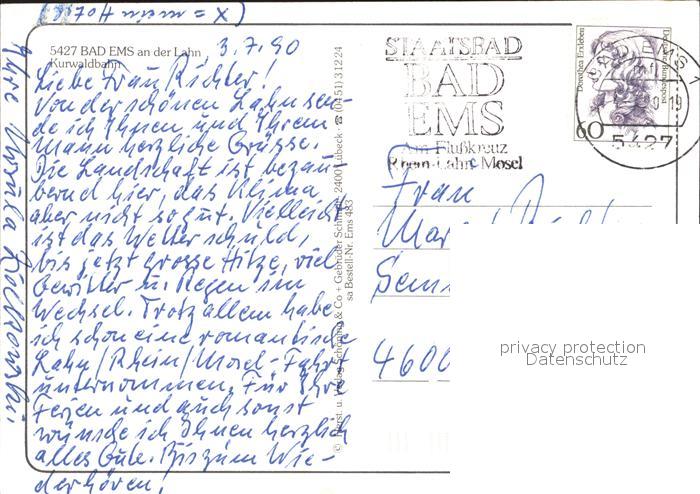 (X = mein Hotel!)
5427 BAD EMS an der Lahn
Kurwaldbahn
3.7.90
Liebe Frau Richter!
Von der schönen Lahn sen-
de ich Ihnen und Ihrem
Mann herzliche Grüsse.
Die Landschaft ist bezau-
bernd hier, das Klima
aber nicht so gut. Vielleicht
ist das Wetter schuld,
bis jetzt grosse Hitze, viel
Gewitter u. Regen im
Wechsel. Trotz allem habe
ich schon eine romantische
Lahn/Rhein/Mosel-Fahrt
unternommen. Für Ihre
Ferien und auch sonst
wünsche ich Ihnen herzlich
alles Gute. Bis zum Wie-
derhören!
Ihre Ursula
Verlag Schöning & Co + Gebrüder Schmidt, 2400 Lübeck ☎ (0451) 31224
sa Bestell-Nr. Ems 483
STAATSBAD
BAD
EMS
Am Flußkreuz
Rhein-Lahn-Mosel
Dorothea Erxleben
Deutsche Bundespost
60
BAD EMS 1
5427
Frau
4600
privacy protection
Datenschutz